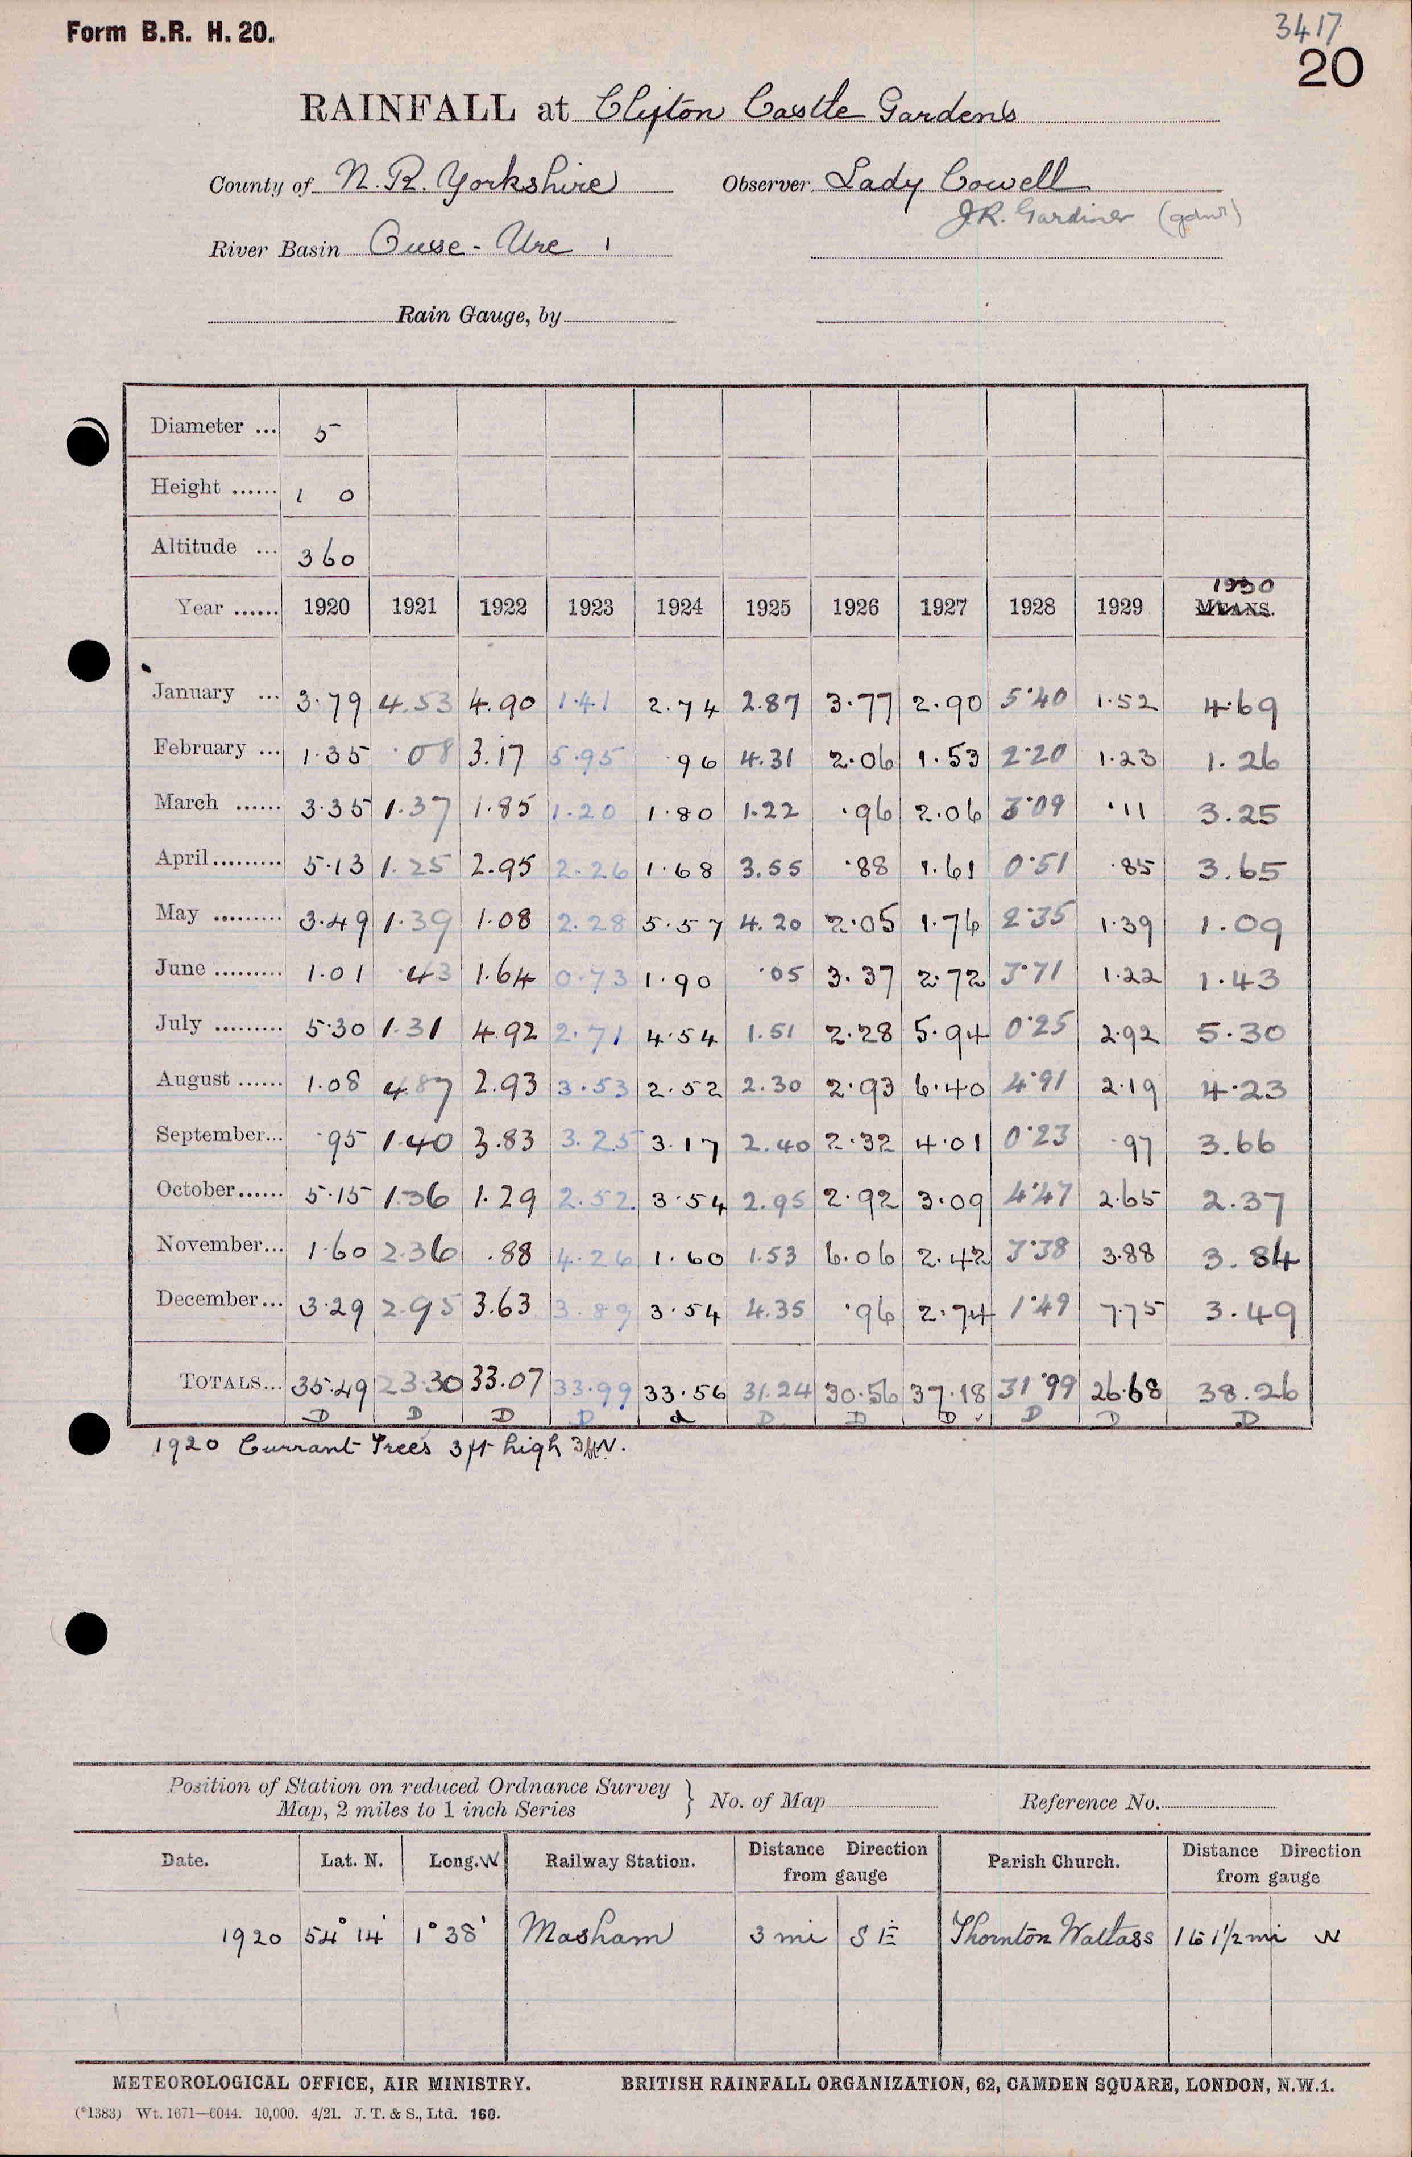 Form B.R. H. 20.
3417
20
RAINFALL at Clifton Castle Gardens
County of N.R. Yorkshire Observer Lady Cowell
J.R. Gardiner (gdnr)
River Basin Ouse - Ure 1
Rain Gauge, by
Diameter ... 5
Height ...... 1 0
Altitude ... 360
1930
Year ...... 1920 1921 1922 1923 1924 1925 1926 1927 1928 1929 MEANS.
January ... 3.79 4.53 4.90 1.41 2.74 2.87 3.77 2.90 5.40 1.52 4.69
February ... 1.35 .08 3.17 5.95 .96 4.31 2.06 1.53 2.20 1.23 1.26
March ...... 3.35 1.37 1.85 1.20 1.80 1.22 .96 2.06 3.09 .11 3.25
April......... 5.13 1.25 2.95 2.26 1.68 3.55 .88 1.61 0.51 .85 3.65
May ......... 3.49 1.39 1.08 2.28 5.57 4.20 2.05 1.76 2.35 1.39 1.09
June ......... 1.01 .43 1.64 0.73 1.90 .05 3.37 2.72 3.71 1.22 1.43
July ......... 5.30 1.31 4.92 2.71 4.54 1.51 2.28 5.94 0.25 2.92 5.30
August ...... 1.08 4.87 2.93 3.53 2.52 2.30 2.93 6.40 4.91 2.19 4.23
September... .95 1.40 3.83 3.25 3.17 2.40 2.32 4.01 0.23 .97 3.66
October...... 5.15 1.36 1.29 2.52 3.54 2.95 2.92 3.09 4.47 2.65 2.37
November... 1.60 2.36 .88 4.26 1.60 1.53 6.06 2.42 3.38 3.88 3.84
December... 3.29 2.95 3.63 3.89 3.54 4.35 .96 2.74 1.49 7.75 3.49
TOTALS... 35.49 23.30 33.07 33.99 33.56 31.24 30.56 37.18 31.99 26.68 38.26
D D D D d D D D D D D
1920 Currant Trees 3 ft high 3ft N.
Position of Station on reduced Ordnance Survey
Map, 2 miles to 1 inch Series } No. of Map Reference No.
Date. Lat. N. Long. W Railway Station. Distance Direction from gauge Parish Church. Distance Direction from gauge
1920 54° 14' 1° 38' Masham 3 mi S E Thornton Watlass 1 to 1 1/2 mi N
METEOROLOGICAL OFFICE, AIR MINISTRY. BRITISH RAINFALL ORGANIZATION, 62, CAMDEN SQUARE, LONDON, N.W.1.
(*1383) Wt. 1671—6044. 10,000. 4/21. J. T. & S., Ltd. 160.